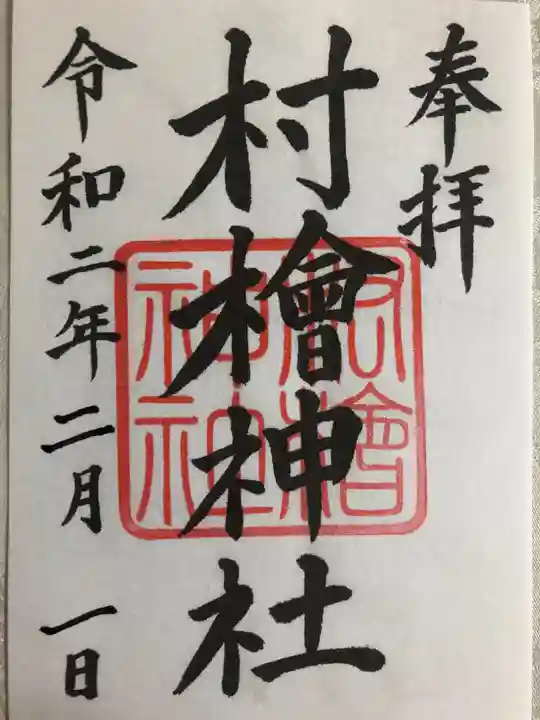 奉拝
村檜神社
令和二年二月一日
村檜
神社